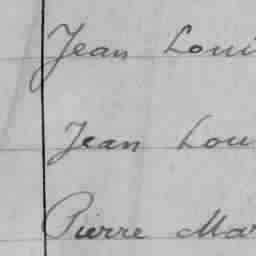 Jean Loui
Jean Lou
Pierre Mar